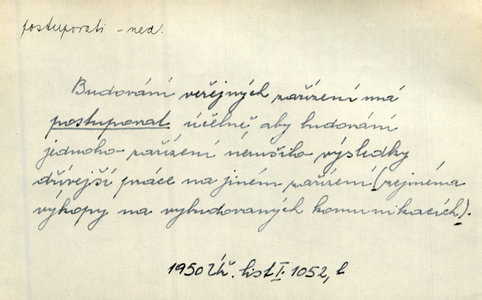 postupovati - ned.
Budování veřejných zařízení má
postupovat účelně aby budování
jednoho zařízení nerušilo výsledky
dřívější práce na jiném zařízení (zejména
výkopy na vybudovaných komunikacích).
1950 Úř. list I 1052, b